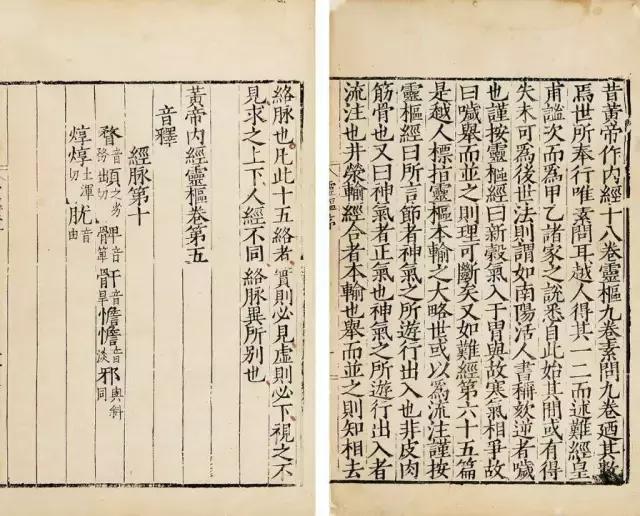 昔黄帝作内經十八卷靈樞九卷素問九卷廼其數
焉世所奉行唯素問耳越人得其一二而述難經皇
甫謐次而為甲乙諸家之説悉自此始其間或有得
失未可為後世法則謂如南陽活人書稱欬逆者噦
也謹按靈樞經曰新穀氣入于胃與故寒氣相爭故
曰噦舉而並之則理可斷矣又如難經第六十五篇
是越人標指靈樞本輸之大略世或以為流注謹按
靈樞經曰所言節者神氣之所遊行出入也非皮肉
筋骨也又曰神氣者正氣也神氣之所遊行出入者
流注也井滎輸經合者本輸也舉而並之則知相去
靈樞序
絡脉也凡此十五絡者實則必見虛則必下視之不
見求之上下人經不同絡脉異所别也
黃帝内經靈樞卷第五
音釋
經脉第十
音務 之劣切 髀音箄 骭音旱 憺憺音淡 邪與斜同
焞焞土渾切 肬音由